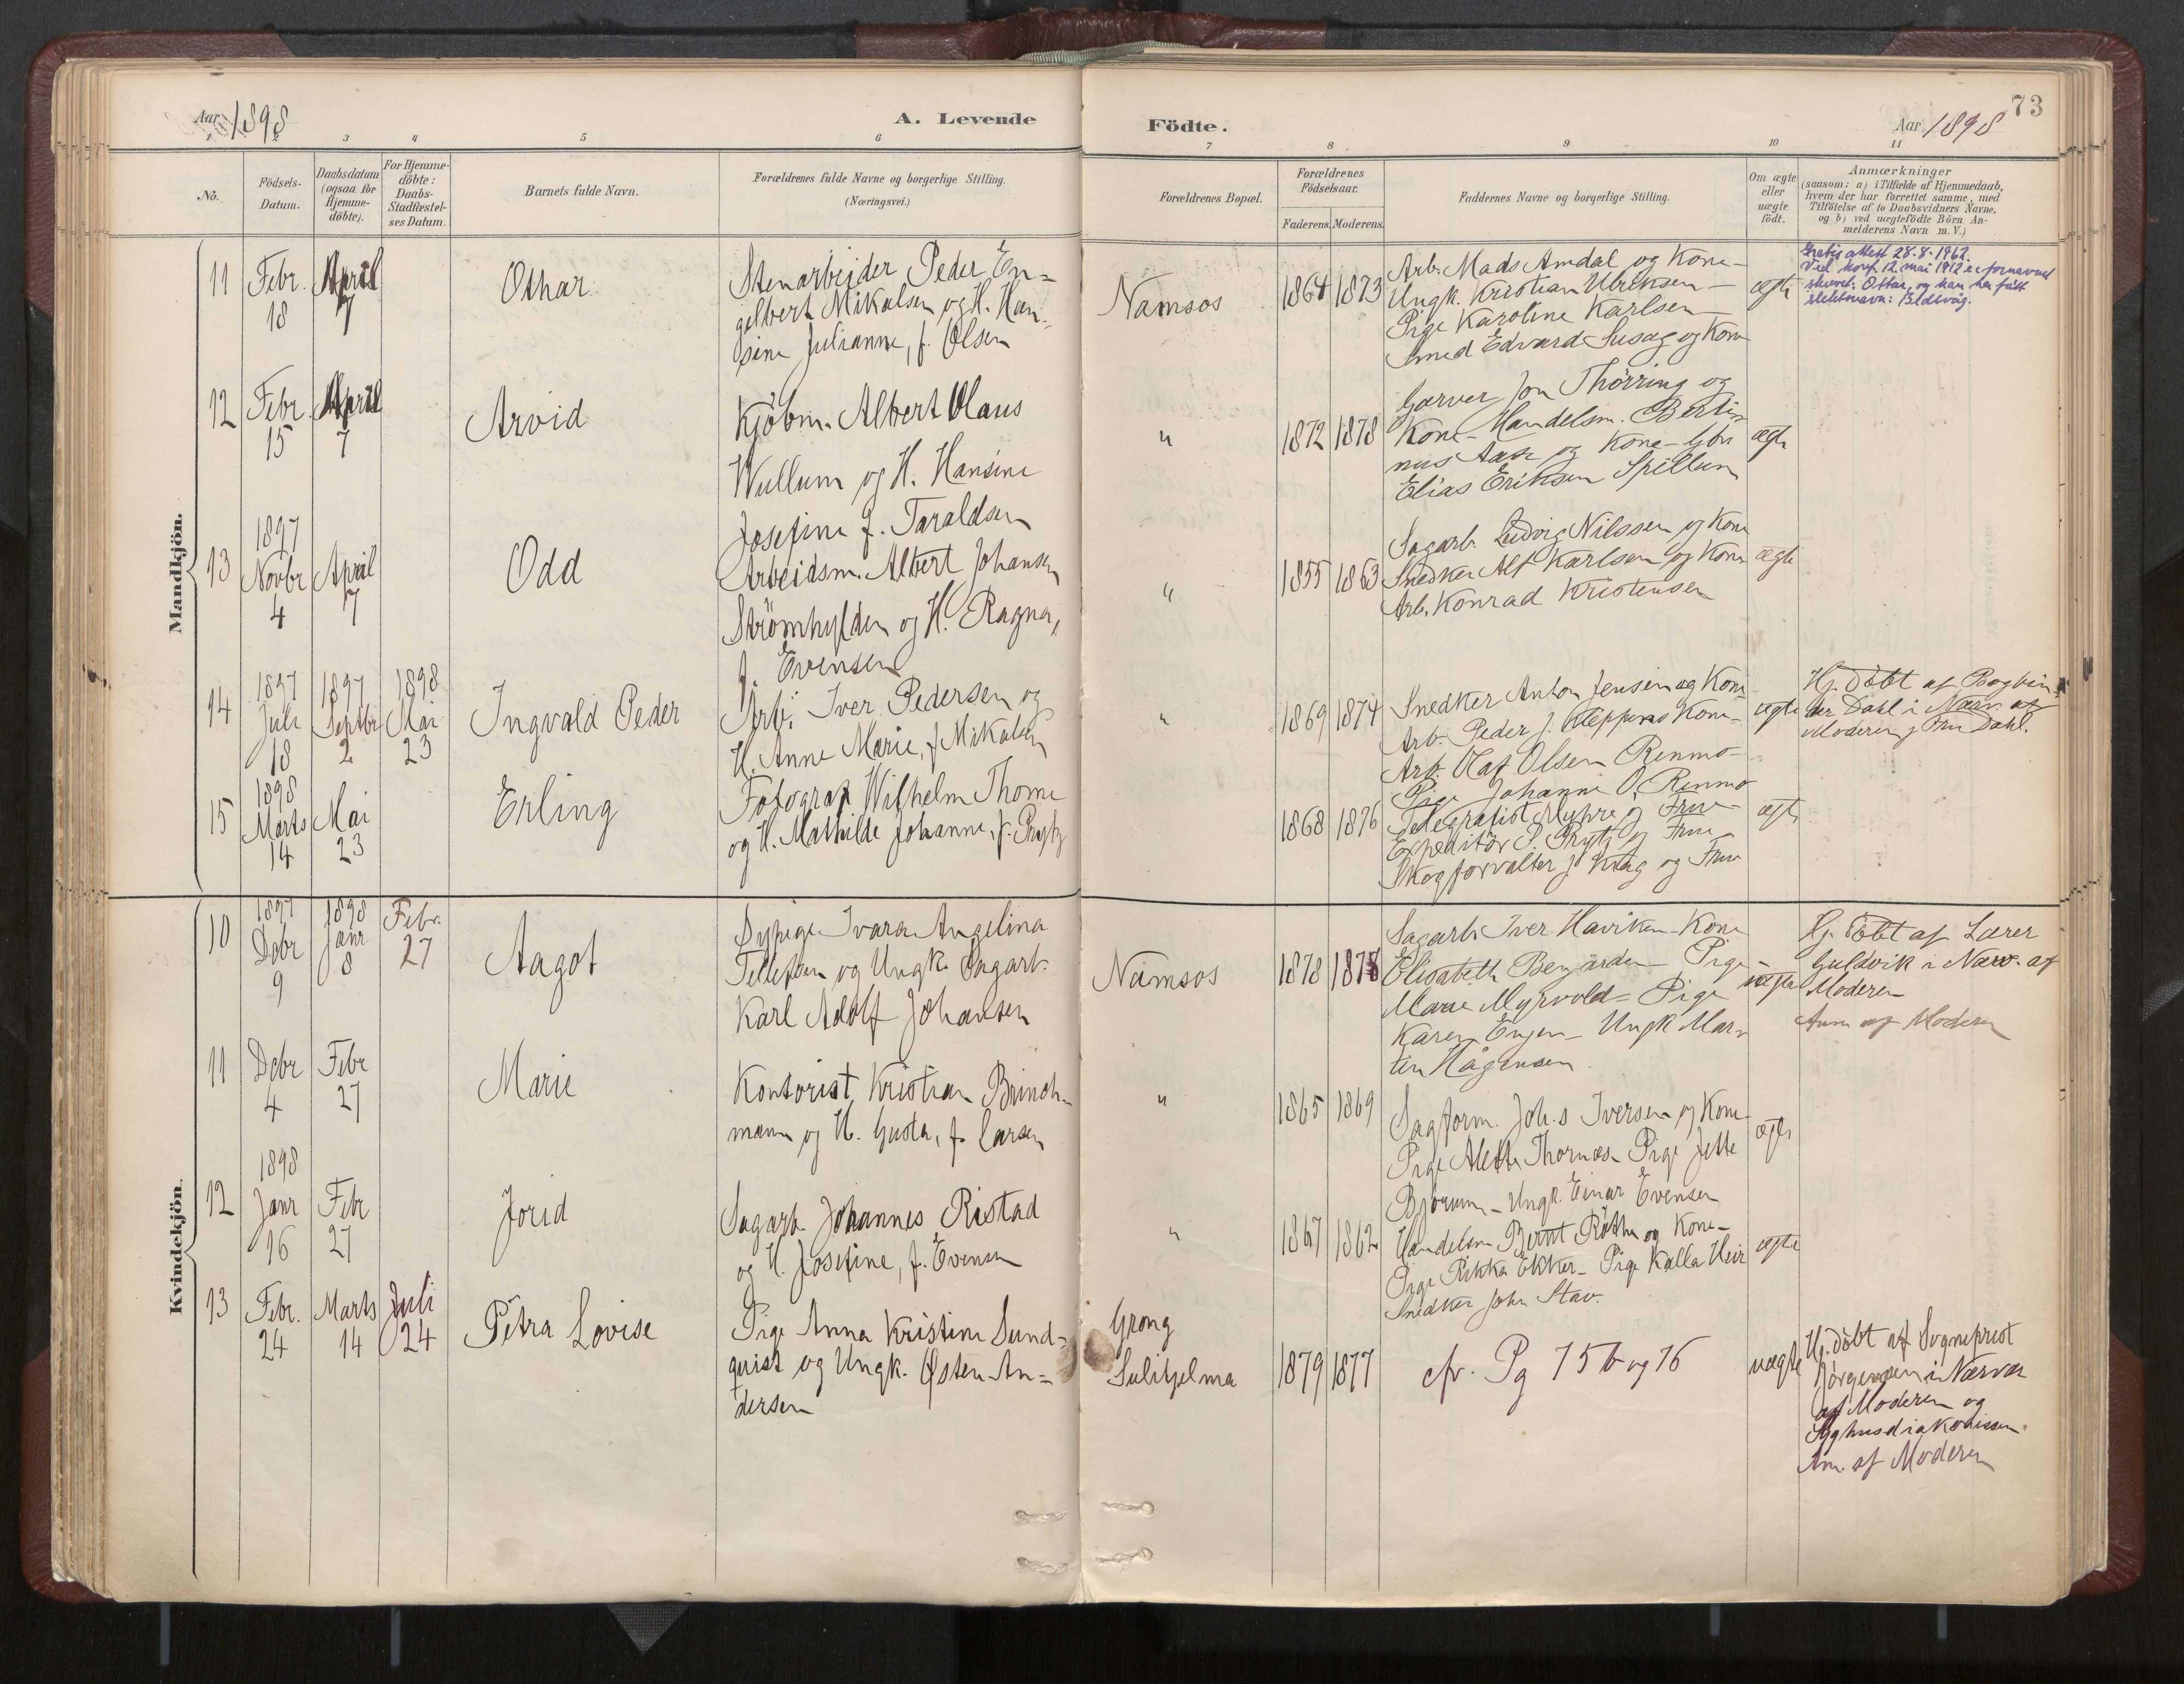 73
Aar 1898
A. Levende
Födte.
Aar 1898
1 2 3 4 5 6 7 8 9 10 11
No.
Födsels-
Datum.
Daabsdatum
(ogsaa for
Hjemme-
döbte).
For Hjemme-
döbte:
Daabs-
Stadfæstel-
ses Datum.
Barnets fulde Navn.
Forældrenes fulde Navne og borgerlige Stilling.
(Næringsvei.)
Forældrenes Bopæl.
Forældrenes
Födselsaar.
Faderens. Moderens.
Faddernes Navne og borgerlige Stilling.
Om ægte
eller
uægte
födt.
Anmærkninger
(saasom: a) i Tilfælde af Hjemmedaab,
hvem der har forrettet samme, med
Tilföielse af to Daabsvidners Navne,
og b) ved uægtefödte Börn An-
melderens Navn m. V.)
Mandkjön.
11
Febr.
18
April
7
Othar
Stenarbeider Peder En-
gelbert Mikalsen og H. Han-
sine Julianne, f. Olsen
Namsos
1864 1873
Arb. Mads Amdal og Kone-
Ungk. Kristian Ulriksen-
Pige Karoline Karlsen
Smed Edvard Susag og Kone
ægte
Gratis attest 28.8.1962.
Ved konf. 12. mai 1912 er fornavnet
skrevet: Ottar, og han har fått
slektsnavn:
12
Febr.
15
April
7
Arvid
Kjöbm. Albert Olaus
Wullum og H. Hansine
Josefine f. Taraldsen
"
1872 1878
Garver Jon Thörring og
Kone- Handelsm. Bertin
nus Aase og Kone-
Elias Eriksen Spillum
ægte
13
1897
Novbr
4
April
7
Odd
Arbeidsm. Albert Johansen
Strömhylden og H. Ragna,
f. Evensen
"
1855 1863
Sagarb. Ludvig Nilssen og Kone
Snedker Alf Karlsen og Kone
Arb. Konrad Kristensen
ægte
14
1897
Juli
18
1897
Septbr
2
1898
Mai
23
Ingvald Peder
Arb. Iver Pedersen og
H. Anne Marie, f. Mikalsen
"
1869 1874
Snedker Anton Jensen og Kone
Arb. Peder J. Kleppens Kone-
Arb. Olaf Olsen Renmo-
Pige Johanne O. Renmo
ægte
Hj. döbt af Bogbin-
der Dahl i Nærv. af
Moderen og Fru Dahl.
15
1898
Marts
14
Mai
23
Erling
Fotograf Wilhelm Thome
og H. Mathilde Johanne, f. Prytz
1868 1876
Telegrafist Myhre og Frue-
Expeditör P. Prytz og Frue-
Skogforvalter J. Krag og Frue
ægte
Kvindekjön.
10
1897
Dcbr
9
1898
Janr
8
Febr.
27
Aagot
Sypige Ivara Angelina
Tellefsen og Ungk. Sagarb.
Karl Adolf Johansen
Namsos
1878 1875
Sagarb. Iver Haviken-Kone
Elisabeth Bergarden- Pige
Marie Myrvold- Pige
Karen Engen- Ungk Mar-
tin Hågensen
uægte
Hj. döbt af Lærer
Guldvik i Nærv. af
Moderen
Anm af Moderen
11
Dcbr
4
Febr
27
Marie
Kontorist Kristian Brinch-
mann og H. Gusta, f. Larsen
"
1865 1869
Sagform. Joh.s Iversen og Kone-
Pige Alette Thornæs- Pige Jette
Bjørum- Ungk. Einar Evensen
ægte
12
1898
Janr
16
Febr
27
Jorid
Sagarb. Johannes Ristad
og H. Josefine, f. Evensen
"
1867 1862
Handelsm. Bernt Röthe og Kone-
Pige Rikka Ekker- Pige Kalla Heir
Snedker John Stav.
ægte
13
Febr.
24
Marts
14
Juli
24
Petra Lovise
Pige Anna Kristine Sund-
quist og Ungk. Østen An-
dersen
Grong
Sulitjelma
1879 1877
cfr. Pg 75b og 76
uægte
Hj. döbt af Sogneprest
Jörgensen i Nærvær
af Moderen og
Syghusdiakonissen.
Anm. af Moderen